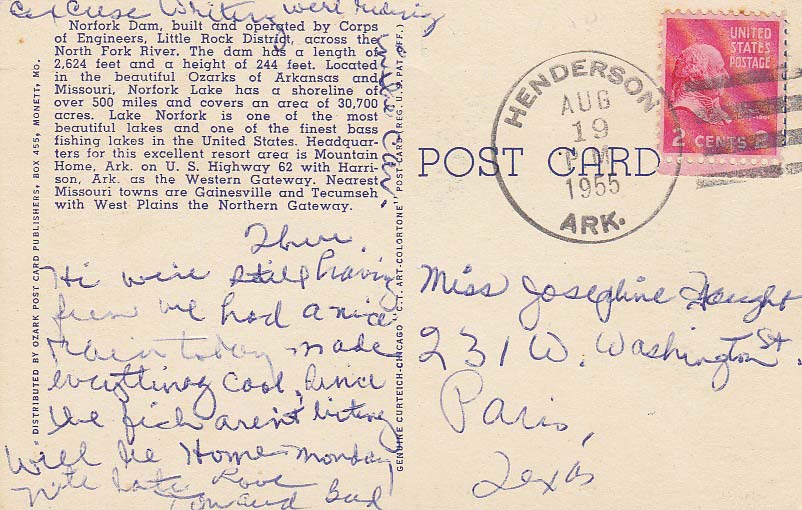 Excuse Writing we're riding
in the Car.
Norfork Dam, built and operated by Corps
of Engineers, Little Rock District, across the
North Fork River. The dam has a length of
2,624 feet and a height of 244 feet. Located
in the beautiful Ozarks of Arkansas and
Missouri, Norfork Lake has a shoreline of
over 500 miles and covers an area of 30,700
acres. Lake Norfork is one of the most
beautiful lakes and one of the finest bass
fishing lakes in the United States. Headquar-
ters for this excellent resort area is Mountain
Home, Ark. on U. S. Highway 62 with Harri-
son, Ark. as the Western Gateway. Nearest
Missouri towns are Gainesville and Tecumseh
with West Plains the Northern Gateway.
DISTRIBUTED BY OZARK POST CARD PUBLISHERS, BOX 455, MONETT, MO.
GENUINE CURTEICH-CHICAGO "C.T. ART-COLORTONE" POST CARD (REG. U.S. PAT. OFF.)
Thur.
Hi we're still having
fun we had a nice
rain today made
everything cool. Since
the fish aren't biting
will be Home Monday
nite late Love
and Bud
POST CARD
HENDERSON
AUG
19
PM
1955
ARK.
UNITED
STATES
POSTAGE
2 CENTS 2
Miss Josephine
231 W. Washington St.
Paris,
Texas